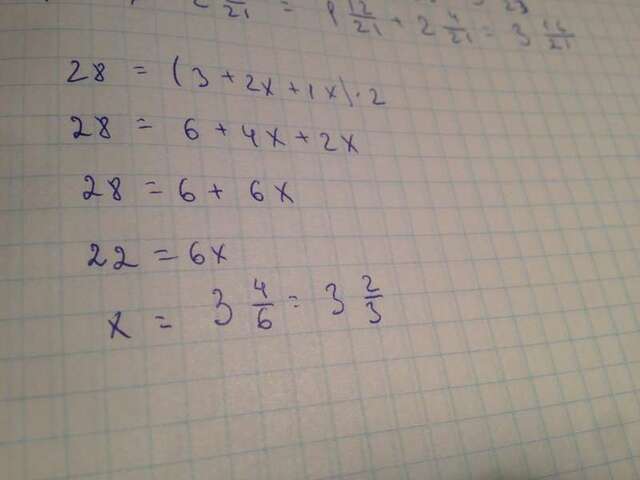 = 1 12/21 + 2 4/21 = 3 16/21
28 = (3 + 2x + 1x) · 2
28 = 6 + 4x + 2x
28 = 6 + 6x
22 = 6x
x = 3 4/6 = 3 2/3